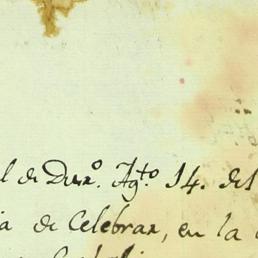 l de Dur.º Ag.to 14. del
ia de Celebrar, en la